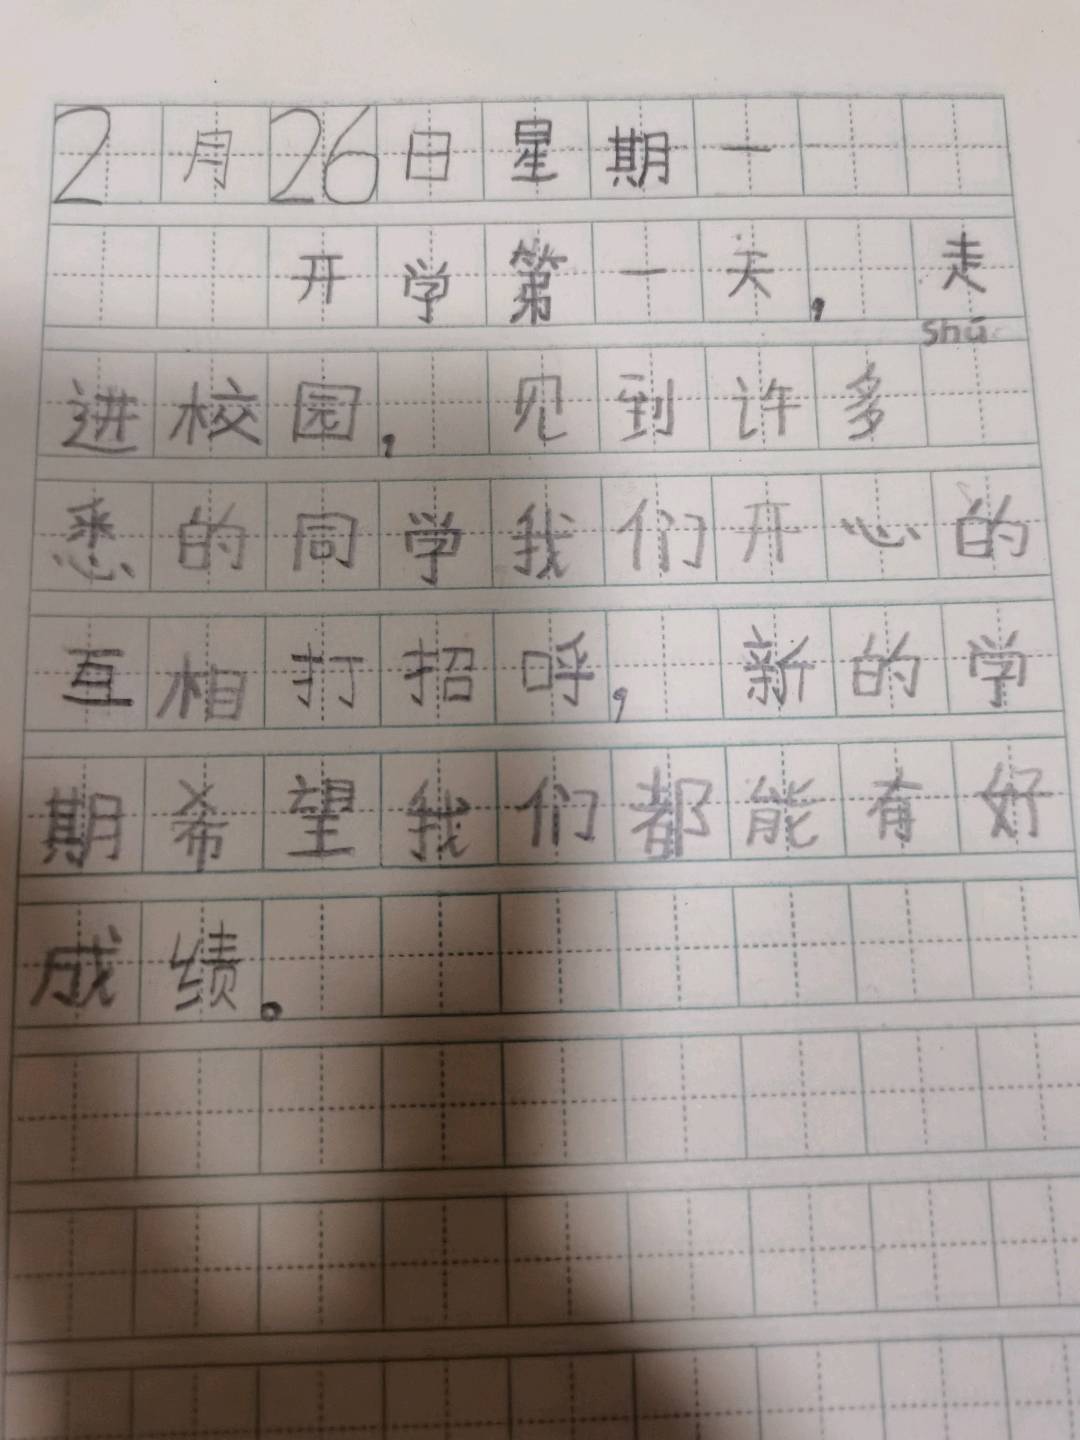 2月26日星期一
开学第一天,走
shú
进校园,见到许多
悉的同学我们开心的
互相打招呼,新的学
期希望我们都能有好
成绩。